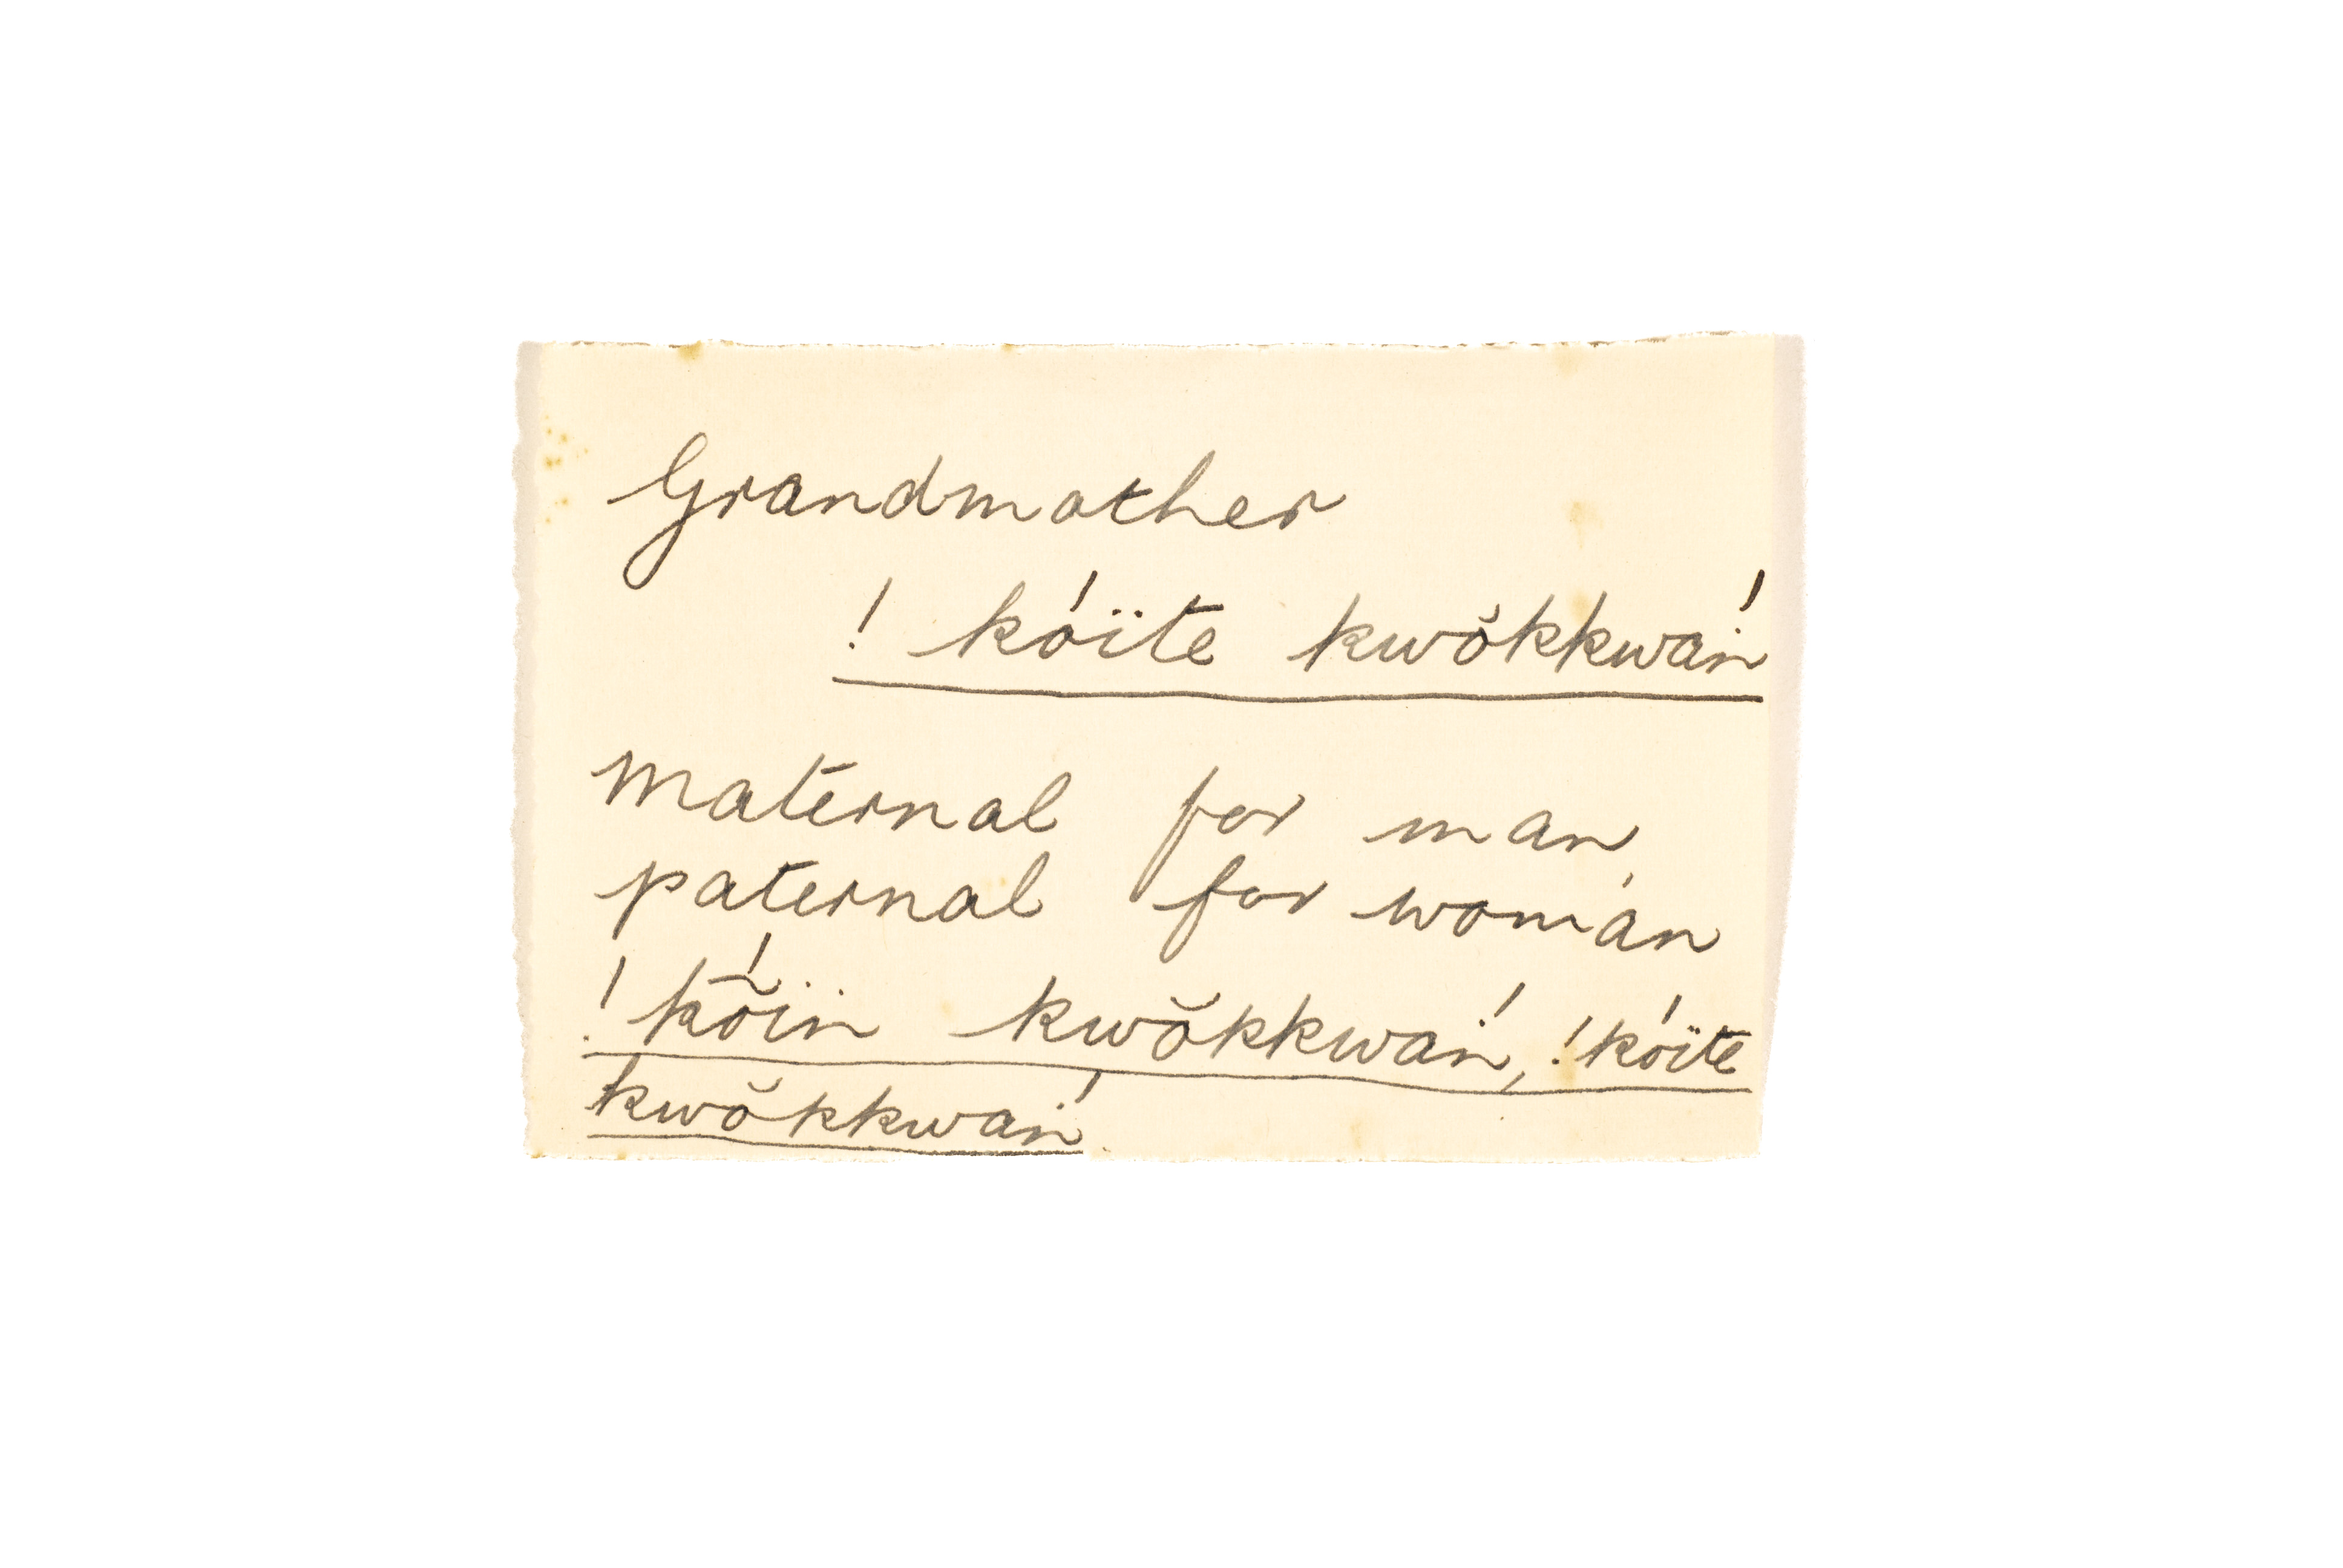 Grandmother
! kóïte kwŏkkwaṅ
maternal for man
paternal for woman
! kŏ́ïn kwŏkkwaṅ, ! kóïte
kwŏkkwaṅ